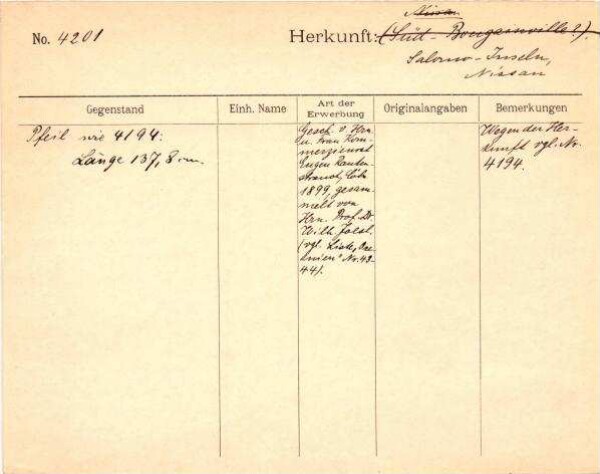 Nissa
No. 4201
Herkunft: (Süd-Bougainville?).
Salomo-Inseln,
Nissan
Gegenstand
Einh. Name
Art der
Erwerbung
Originalangaben
Bemerkungen
Pfeil wie 4194.
Länge 137,8 cm.
Gesch. v. Hrn.
u. Frau Kom-
merzienrat
Eugen Rauten-
strauch, Cöln
1899, gesam-
melt von
Hrn. Prof. Dr.
Wilh. Joest.
(vgl. Liste "Oze-
anien" Nr. 43-
44).
Wegen der Her-
kunft vgl. Nr.
4194.